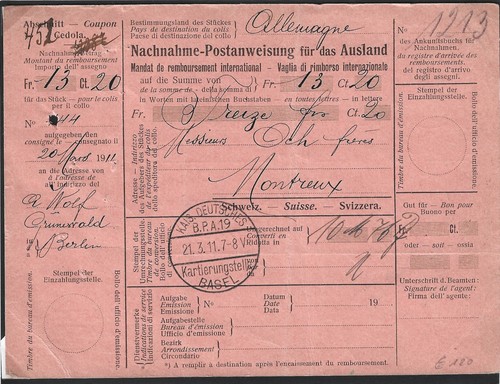 Abschnitt - Coupon
Cedola.
452
Nachnahmebetrag
Montant du remboursement
Importo dell'assegno
Fr. 13 Ct. 20
für das Stück — pour le colis
per il collo
No 44
aufgegeben den
consigné le consegnato il
20 Mars 1911
an die Adresse von
à l'adresse de
all'indirizzo del
A Wolf
Grünwald
Berlin
Stempel der
Einzahlungsstelle.
Timbre du bureau d'émission.
Bollo dell'ufficio d'emissione.
Bestimmungsland des Stückes
Pays de destination du colis
Paese di destinazione del collo
Allemagne
Nachnahme-Postanweisung für das Ausland
Mandat de remboursement international — Vaglia di rimborso internazionale
auf die Summe von
de la somme de della somma di
Fr. 13 Ct. 20
in Worten mit lateinischen Buchstaben — en toutes lettres — in lettere
Fr. Treize frs Ct. 20
Adresse — Indirizzo
des Aufgebers des Stückes
de l'expéditeur du colis
dello speditore del collo
Messieurs Och frères
Montreux
Schweiz. — Suisse. — Svizzera.
KAIS. DEUTSCHES
B.P.A.19
21.3.11.7-8 V.
Kartierungstelle
BASEL
Umgerechnet auf
Converti en
Ridotta in
10 M 76
Stempel der
Umrechnungsstelle
Timbre du bureau
de conversion
Bollo dell'uffizio
Dienstvermerke
Indications de service
Indicazioni di servizio
Aufgabe
Emission
Emissione
No
Datum
Date
Data
19
Aufgabestelle
Bureau d'émission
Ufficio d'emissione
Bezirk
Arrondissement
Circondario
*) A remplir à destination après l'encaissement du remboursement.
1213
No
des Ankunftsbuchs für
Nachnahmen.
du registre d'arrivée
des remboursements.
del registro d'arrivo
degli assegni.
Stempel der
Einzahlungsstelle.
Timbre du bureau d'émission.
Bollo dell'ufficio d'emissione.
Gut für — Bon pour
Buono per
oder — soit — ossia
Unterschrift d. Beamten:
Signature de l'agent:
Firma dell'agente:
£ 180